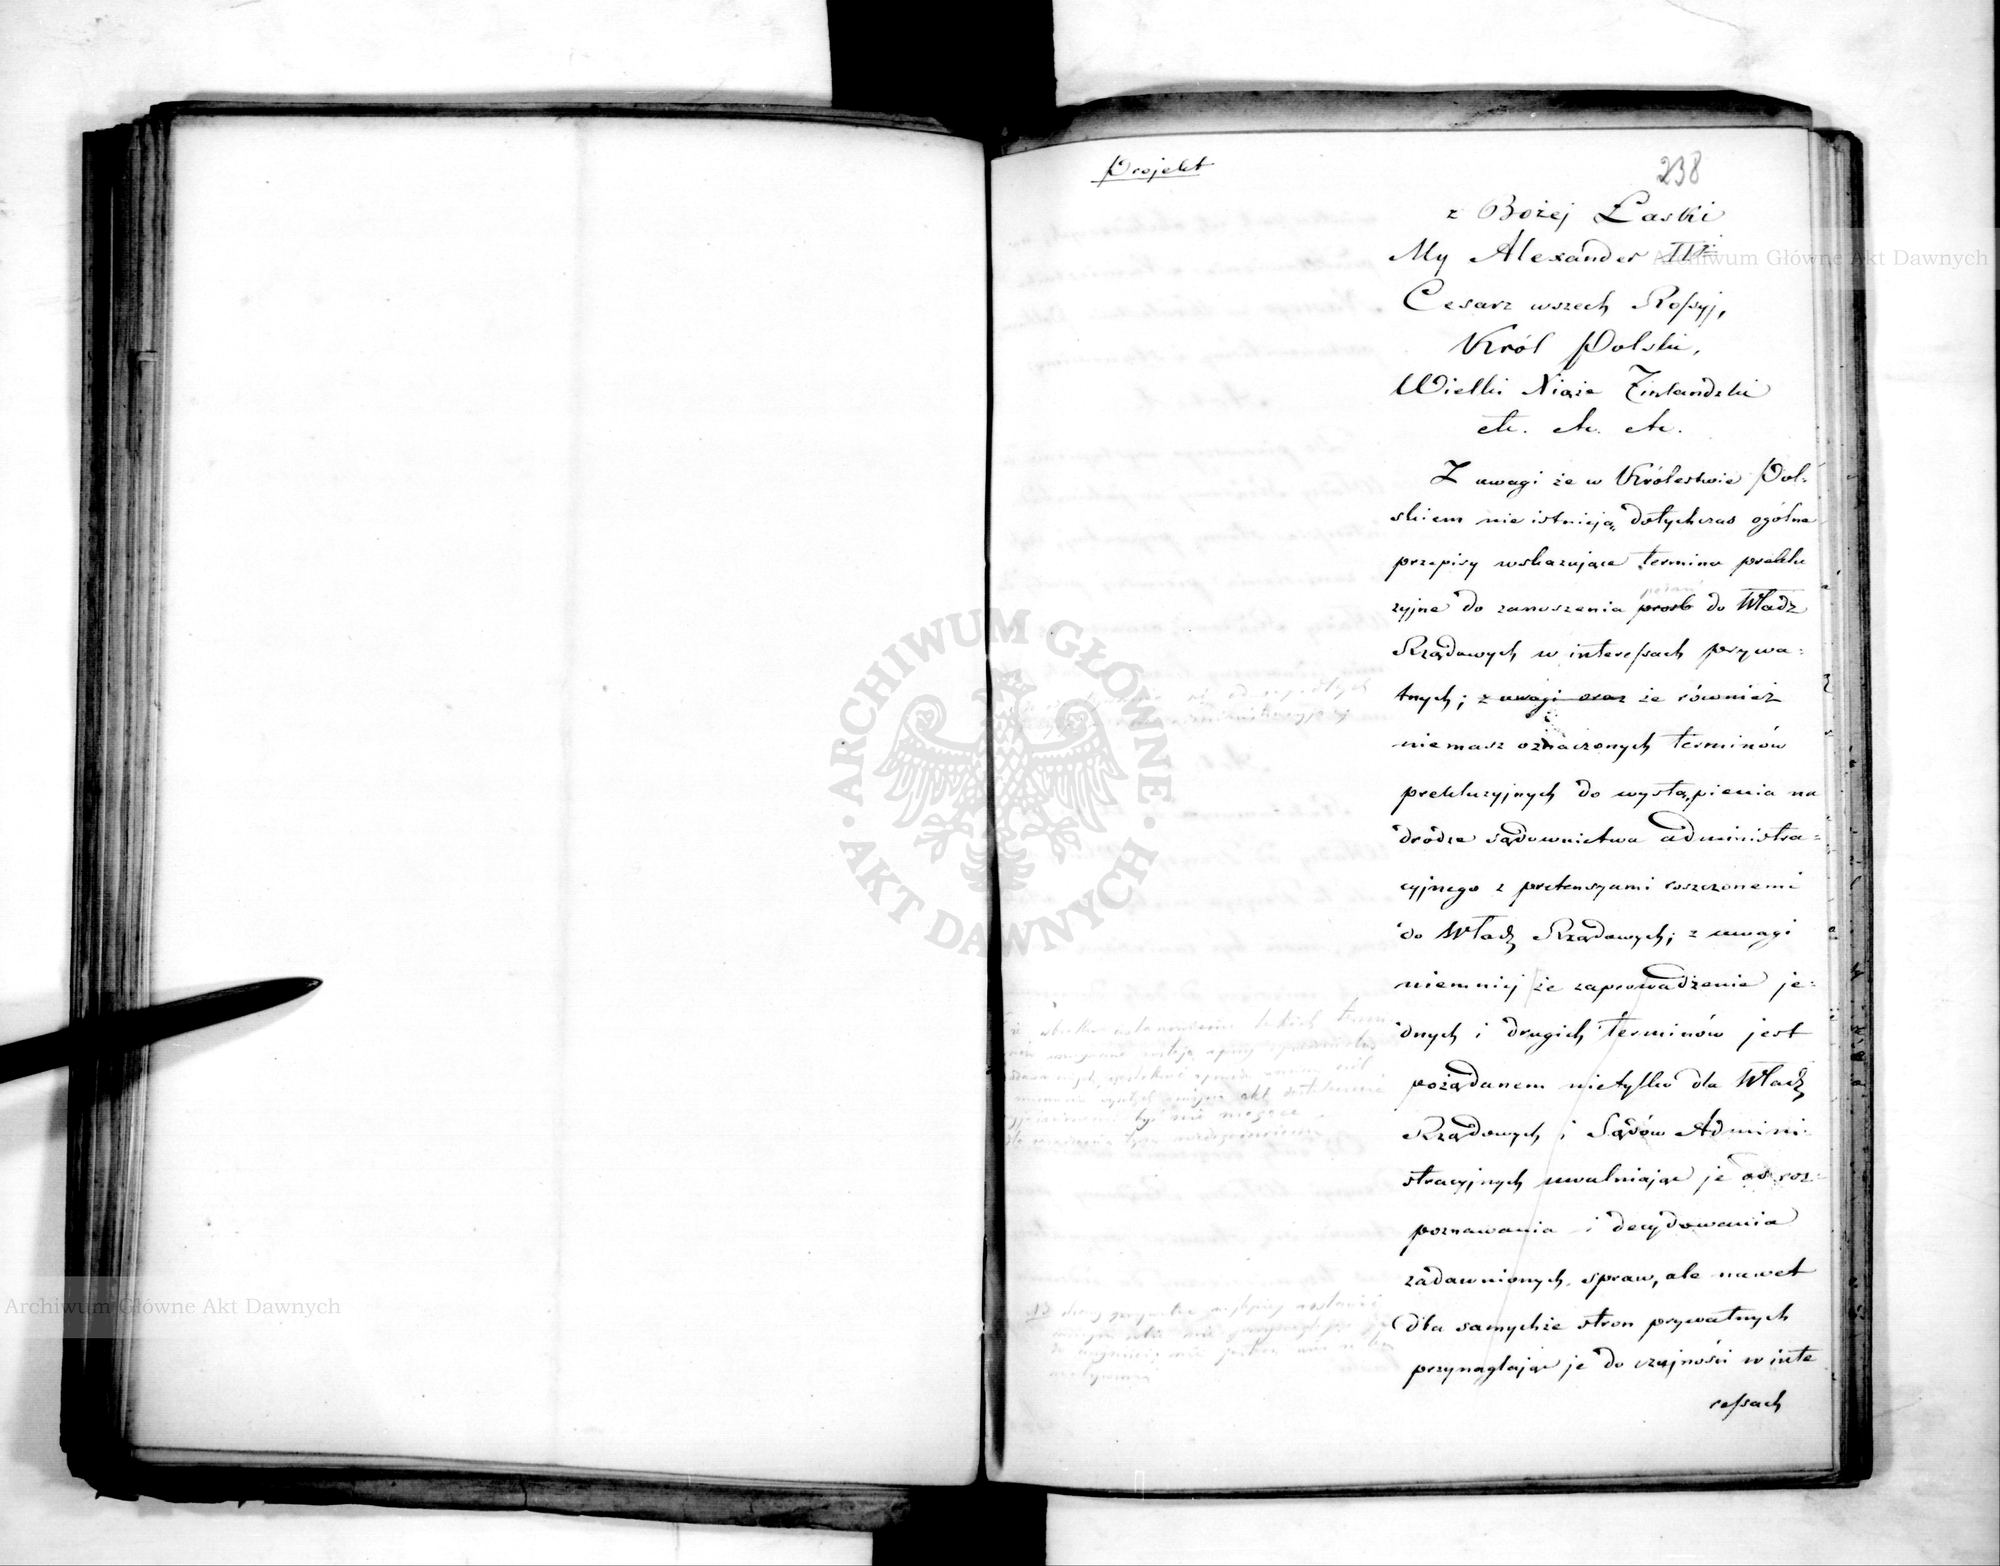 Projekt
238
z Bożej Łaski
My Alexander II<sup>gi</sup>
Cesarz wszech Rossyj,
Król Polski,
Wielki Xiąże Finlandzki
etc. etc. etc.
Z uwagi że w Królestwie Pol-
skiem nie istnieją dotychczas ogólne
przepisy wskazujące termina preklu
zyjne do zanoszenia prosb do Władz
podań
Rządowych w interessach prywa-
tnych; z uwagi oraz że również
niemasz oznaczonych terminów
prekluzyjnych do wystąpienia na
drodze sądownictwa administra-
cyjnego z pretensyami roszczonemi
do Władz Rządowych; z uwagi
niemniej że zaprowadzenie je-
dnych i drugich terminów jest
pożądanem nietylko dla Władz
Rządowych i Sądów Admini-
stracyjnych uwalniając je od roz-
poznawania i decydowania
zadawnionych spraw, ale nawet
dla samychże stron prywatnych
przynaglając je do czujności w inte
ressach
ARCHIWUM GŁÓWNE
AKT DAWNYCH
Archiwum Główne Akt Dawnych
Archiwum Główne Akt Dawnych